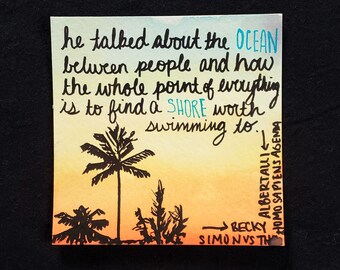 he talked about the OCEAN
between people and how
the whole point of everything
is to find a SHORE worth
swimming to.
ALBERTALLI
HOMOSAPIENS AGENDA
BECKY
SIMON VS THE